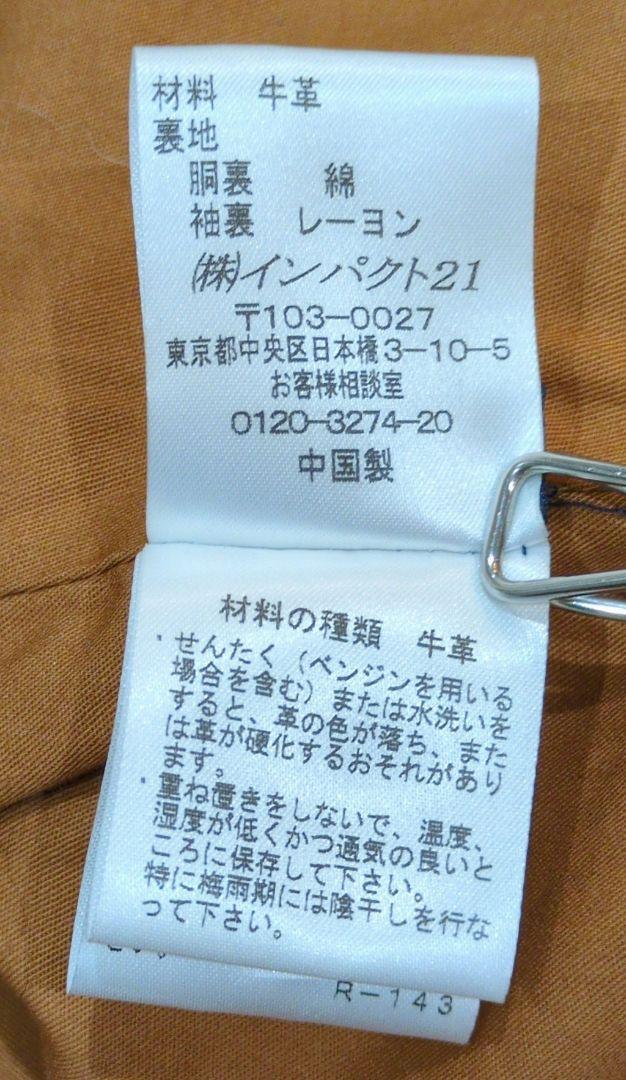 材料 牛革
裏地
胴裏 綿
袖裏 レーヨン
㈱インパクト21
〒103-0027
東京都中央区日本橋3-10-5
お客様相談室
0120-3274-20
中国製
材料の種類 牛革
・せんたく(ベンジンを用いる
場合を含む)または水洗いを
すると、革の色が落ち、また
は革が硬化するおそれがあり
ます。
・重ね置きをしないで、温度、
湿度が低くかつ通気の良いと
ころに保存して下さい。
特に梅雨期には陰干しを行な
って下さい。
R-143